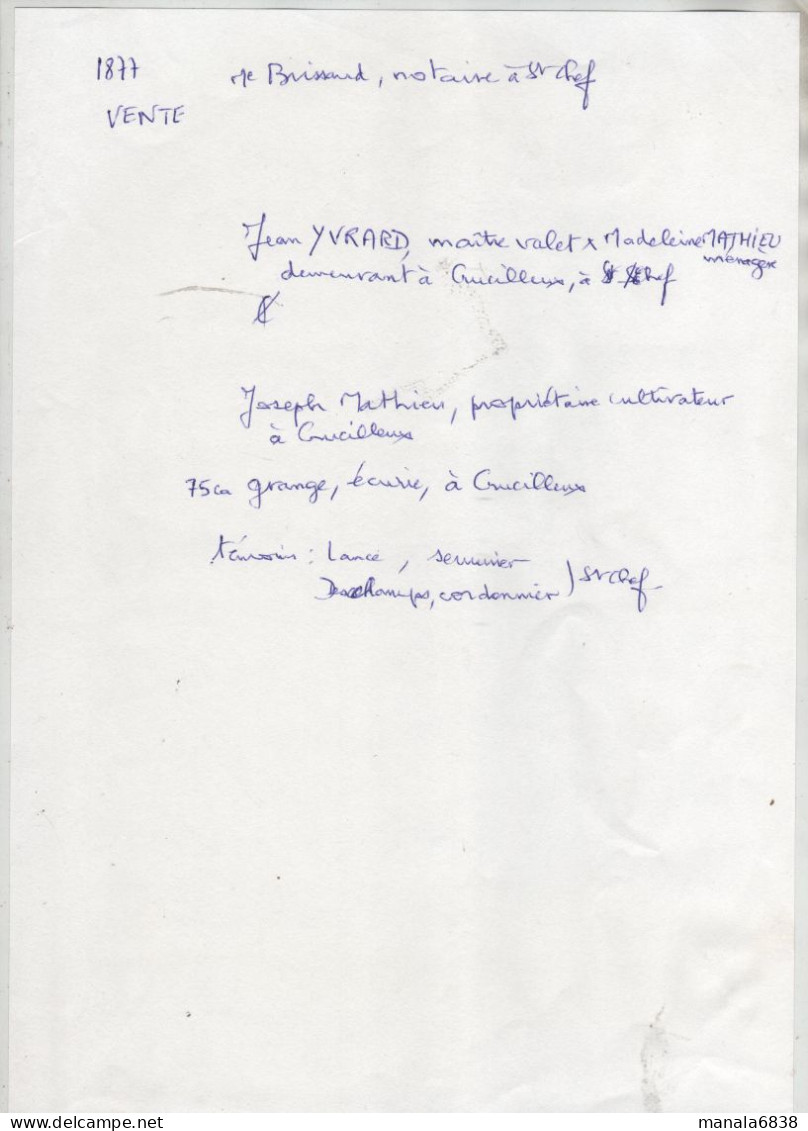 1877 Me Brissaud, notaire à St Chef
VENTE
Jean YVRARD, maître valet x Madeleine MATHIEU
ménagère
demeurant à Crucilleux, à St Chef
Joseph Mathieu, propriétaire cultivateur
à Crucilleux
75ca grange, écurie, à Crucilleux
témoins : Lance, serrurier
Deschamps, cordonnier ) St Chef
manala6838